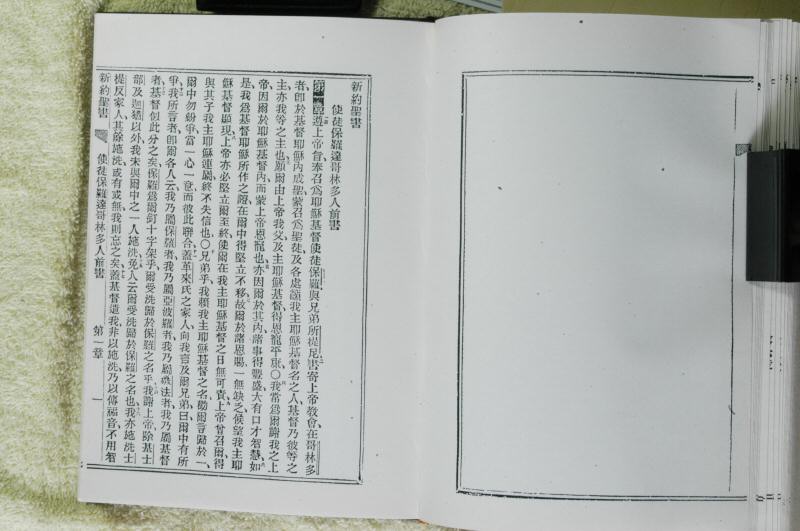 新約聖書
使徒保羅達哥林多人前書
第一章遵上帝旨奉召爲耶穌基督使徒保羅與兄弟所提尼書寄上帝敎會在哥林多
者卽於基督耶穌內成聖蒙召爲聖徒及各處籲我主耶穌基督名之人基督乃彼等之
主亦我等之主也願爾由上帝我父及主耶穌基督得恩寵平康〇我常爲爾謝我之上
帝因爾於耶穌基督內而蒙上帝恩寵也亦因爾於其內諸事得豐盛大有口才智慧如
是我爲基督耶穌所作之證在爾中得堅立不移故爾於諸恩賜一無缺乏候望我主耶
穌基督顯現上帝亦必堅立爾至終使爾在我主耶穌基督之日無可責上帝曾召爾得
與其子我主耶穌運屬終不失信也〇兄弟乎我賴我主耶穌基督之名勸爾言歸於一
爾中勿紛爭當一心一意而彼此聯合蓋革來氏之家人向我言及爾兄弟曰爾中有所
爭我所言者卽爾各人云我乃屬保羅者我乃屬亞波羅者我乃屬磯法者我乃屬基督
者基督似此分之矣保羅爲爾釘十字架乎爾受洗歸於保羅之名乎我謝上帝除基士
部及迦猶以外我未與爾中之一人施洗免人云爾受洗歸於保羅之名也我亦施洗士
提反家人其餘施洗或有或無我則忘之矣蓋基督遣我非以施洗乃以傳福音不用智
新約聖書 使徒保羅達哥林多人前書 第一章 一